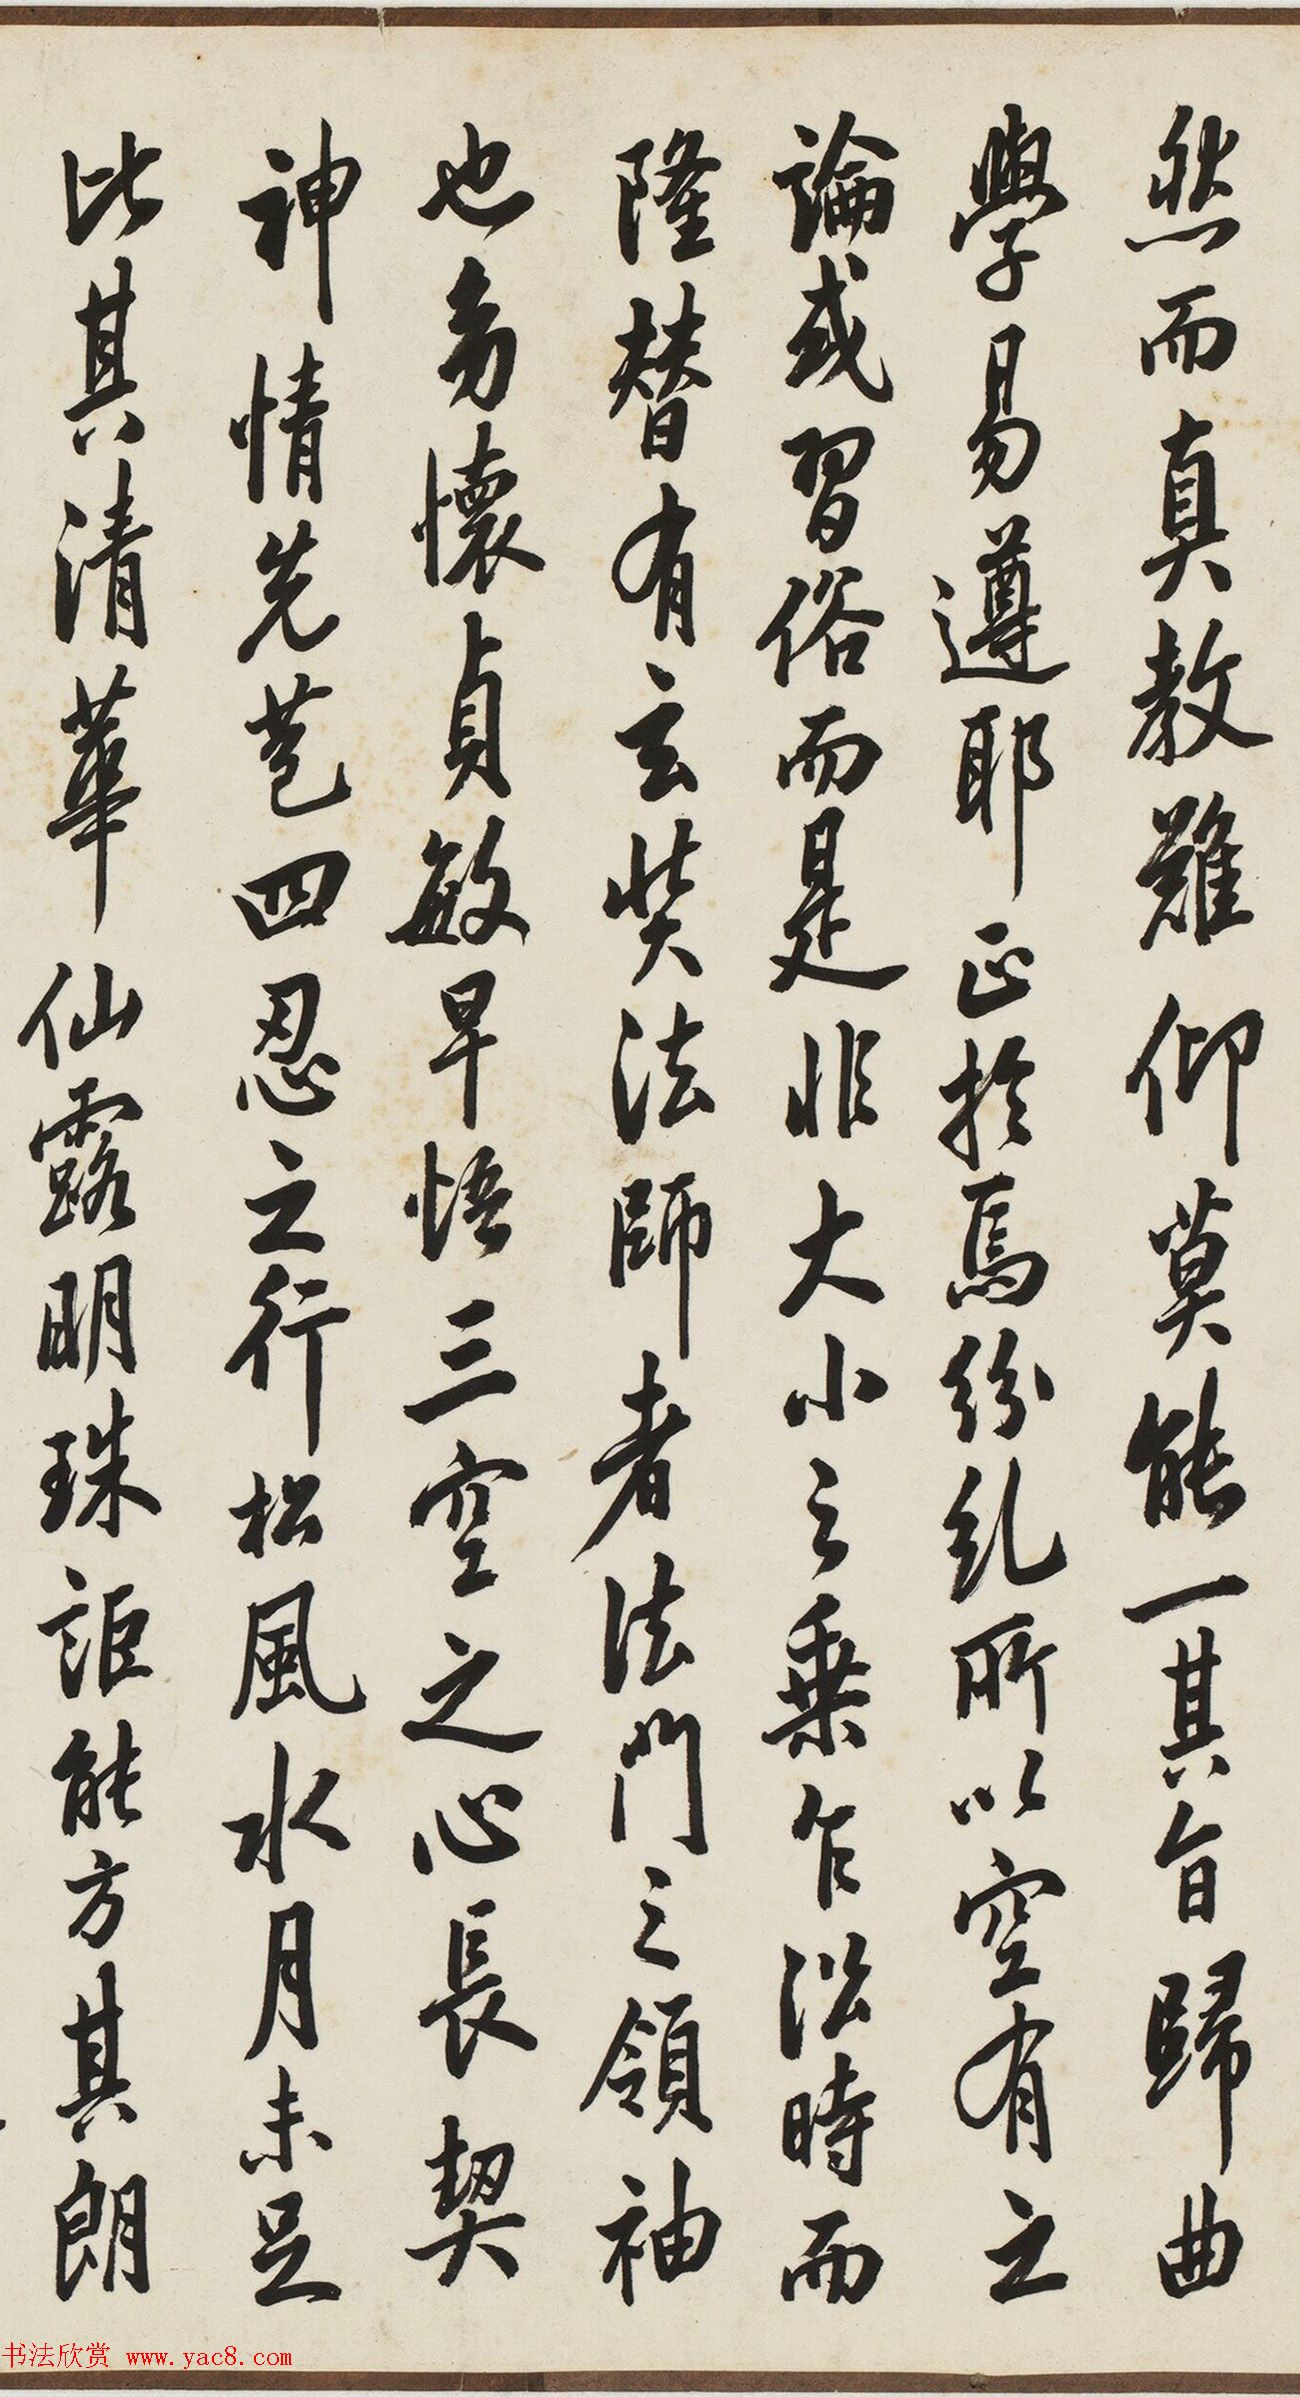 然而真教難仰莫能一其旨歸曲
學易遵耶正於焉紛糺所以空有之
論或習俗而是非大小之乘乍沿時而
隆替有玄奘法師者法門之領袖
也幼懷貞敏早悟三空之心長契
神情先苞四忍之行松風水月未足
比其清華仙露明珠詎能方其朗
书法欣赏 www.yac8.com